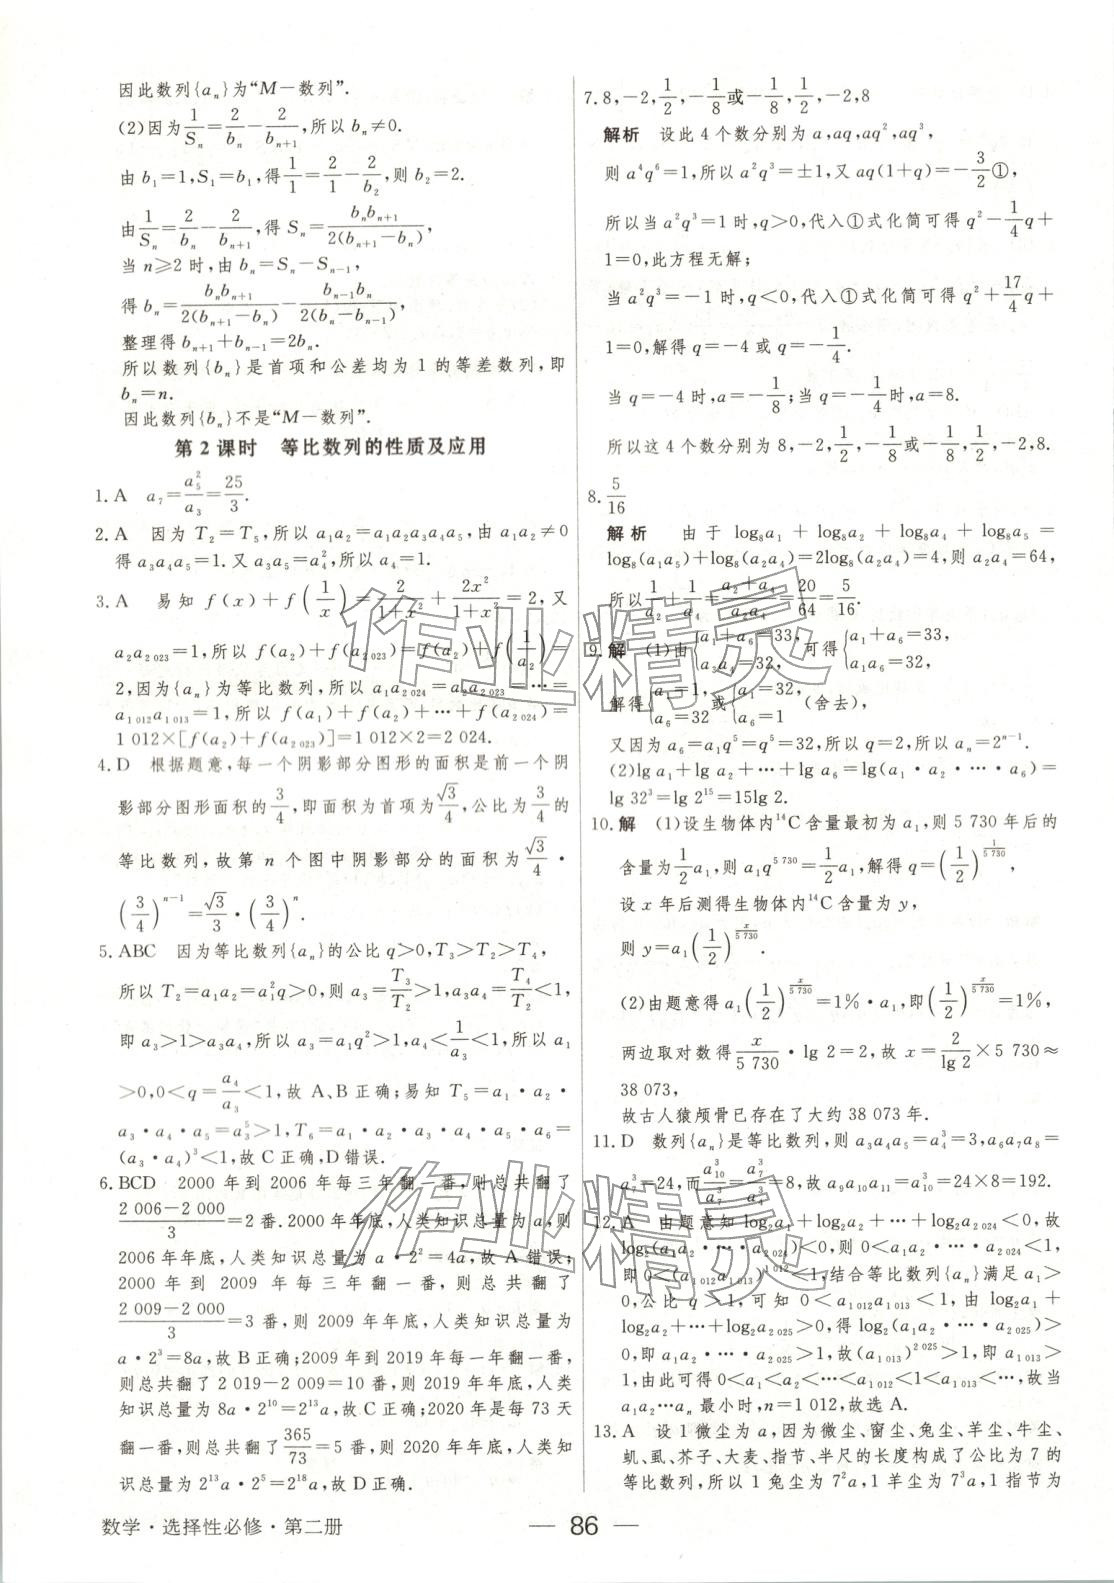 因此数列{aₙ}为“M－数列”.
(2)因为1/Sₙ=2/bₙ-2/bₙ₊₁,所以 bₙ≠0.
由 b₁=1,S₁=b₁,得1/1=2/1-2/b₂,则 b₂=2.
由1/Sₙ=2/bₙ-2/bₙ₊₁,得 Sₙ=bₙbₙ₊₁/2(bₙ₊₁-bₙ),
当 n≥2 时,由 bₙ=Sₙ-Sₙ₋₁,
得 bₙ=bₙbₙ₊₁/2(bₙ₊₁-bₙ)-bₙ₋₁bₙ/2(bₙ-bₙ₋₁),
整理得 bₙ₊₁+bₙ₋₁=2bₙ.
所以数列{bₙ}是首项和公差均为 1 的等差数列,即
bₙ=n.
因此数列{bₙ}不是“M－数列”.
第 2 课时　等比数列的性质及应用
1. A　a₇=a₅²/a₃=25/3.
2. A　因为 T₂=T₅,所以 a₁a₂=a₁a₂a₃a₄a₅,由 a₁a₂≠0
得 a₃a₄a₅=1.又 a₃a₅=a₄²,所以 a₄=1.
3. A　易知 f(x)+f(1/x)=2/(1+x²)+2x²/(1+x²)=2,又
a₂a₂ ₀₂₃=1,所以 f(a₂)+f(a₂ ₀₂₃)=f(a₂)+f(1/a₂)=
2,因为{aₙ}为等比数列,所以 a₁a₂ ₀₂₄=a₂a₂ ₀₂₃=⋯=
a₁ ₀₁₂a₁ ₀₁₃=1,所以 f(a₁)+f(a₂)+⋯+f(a₂ ₀₂₄)=
1 012×[f(a₂)+f(a₂ ₀₂₃)]=1 012×2=2 024.
4. D　根据题意,每一个阴影部分图形的面积是前一个阴
影部分图形面积的3/4,即面积为首项为√3/4,公比为3/4的
等比数列,故第 n 个图中阴影部分的面积为√3/4·
(3/4)ⁿ⁻¹=√3/3·(3/4)ⁿ.
5. ABC　因为等比数列{aₙ}的公比 q>0,T₃>T₂>T₄,
所以 T₂=a₁a₂=a₁²q>0,则 a₃=T₃/T₂>1,a₃a₄=T₄/T₂<1,
即 a₃>1>a₃a₄,所以 a₃=a₁q²>1,a₄<1/a₃<1,所以 a₁
>0,0<q=a₄/a₃<1,故 A、B 正确;易知 T₅=a₁·a₂·
a₃·a₄·a₅=a₃⁵>1,T₆=a₁·a₂·a₃·a₄·a₅·a₆=
(a₃·a₄)³<1,故 C 正确,D 错误.
6. BCD　2000 年到 2006 年每三年翻一番,则总共翻了
(2 006-2 000)/3=2 番.2000 年年底,人类知识总量为 a,则
2006 年年底,人类知识总量为 a·2²=4a,故 A 错误;
2000 年到 2009 年每三年翻一番,则总共翻了
(2 009-2 000)/3=3 番,则 2009 年年底,人类知识总量为
a·2³=8a,故 B 正确;2009 年到 2019 年每一年翻一番,
则总共翻了 2 019-2 009=10 番,则 2019 年年底,人类
知识总量为 8a·2¹⁰=2¹³a,故 C 正确;2020 年是每 73 天
翻一番,则总共翻了365/73=5 番,则 2020 年年底,人类知
识总量为 2¹³a·2⁵=2¹⁸a,故 D 正确.
7. 8,-2,1/2,-1/8或-1/8,1/2,-2,8
解析　设此 4 个数分别为 a,aq,aq²,aq³,
则 a⁴q⁶=1,所以 a²q³=±1,又 aq(1+q)=-3/2①,
所以当 a²q³=1 时,q>0,代入①式化简可得 q²-1/4q+
1=0,此方程无解;
当 a²q³=-1 时,q<0,代入①式化简可得 q²+17/4q+
1=0,解得 q=-4 或 q=-1/4.
当 q=-4 时,a=-1/8;当 q=-1/4时,a=8.
所以这 4 个数分别为 8,-2,1/2,-1/8或-1/8,1/2,-2,8.
8. 5/16
解析　由于 log₈a₁+log₈a₂+log₈a₄+log₈a₅=
log₈(a₁a₅)+log₈(a₂a₄)=2log₈(a₂a₄)=4,则 a₂a₄=64,
所以1/a₂+1/a₄=(a₂+a₄)/a₂a₄=20/64=5/16.
9. 解　(1)由{a₁+a₆=33, a₃a₄=32, 可得{a₁+a₆=33, a₁a₆=32,
解得{a₁=1, a₆=32 或{a₁=32, a₆=1 (舍去),
又因为 a₆=a₁q⁵=q⁵=32,所以 q=2,所以 aₙ=2ⁿ⁻¹.
(2)lg a₁+lg a₂+⋯+lg a₆=lg(a₁·a₂·⋯·a₆)=
lg 32³=lg 2¹⁵=15lg 2.
10. 解　(1)设生物体内¹⁴C 含量最初为 a₁,则 5 730 年后的
含量为1/2a₁,则 a₁q⁵ ⁷³⁰=1/2a₁,解得 q=(1/2)^(1/5 730),
设 x 年后测得生物体内¹⁴C 含量为 y,
则 y=a₁(1/2)^(x/5 730).
(2)由题意得 a₁(1/2)^(x/5 730)=1%·a₁,即(1/2)^(x/5 730)=1%,
两边取对数得x/5 730·lg 2=2,故 x=2/lg 2×5 730≈
38 073,
故古人猿颅骨已存在了大约 38 073 年.
11. D　数列{aₙ}是等比数列,则 a₃a₄a₅=a₄³=3,a₆a₇a₈=
a₇³=24,而a₁₀³/a₇³=a₇³/a₄³=8,故 a₉a₁₀a₁₁=a₁₀³=24×8=192.
12. A　由题意知 log₂a₁+log₂a₂+⋯+log₂a₂ ₀₂₄<0,故
log₂(a₁a₂·⋯·a₂ ₀₂₄)<0,则 0<a₁a₂·⋯·a₂ ₀₂₄<1,
即 0<(a₁ ₀₁₂a₁ ₀₁₃)¹ ⁰¹²<1,结合等比数列{aₙ}满足 a₁>
0,公比 q>1,可知 0<a₁ ₀₁₂a₁ ₀₁₃<1,由 log₂a₁+
log₂a₂+⋯+log₂a₂ ₀₂₅>0,得 log₂(a₁a₂·⋯·a₂ ₀₂₅)>
0,即 a₁a₂·⋯·a₂ ₀₂₅>1,故(a₁ ₀₁₃)² ⁰²⁵>1,即 a₁ ₀₁₃>
1,由此可得 0<a₁<a₂<⋯<a₁ ₀₁₂<1<a₁ ₀₁₃<⋯,故当
a₁a₂⋯aₙ 最小时,n=1 012,故选 A.
13. A　设 1 微尘为 a,因为微尘、窗尘、兔尘、羊尘、牛尘、
虮、虱、芥子、大麦、指节、半尺的长度构成了公比为 7 的
等比数列,所以 1 兔尘为 7²a,1 羊尘为 7³a,1 指节为
数学·选择性必修·第二册
— 86 —
作业精灵
作业精灵